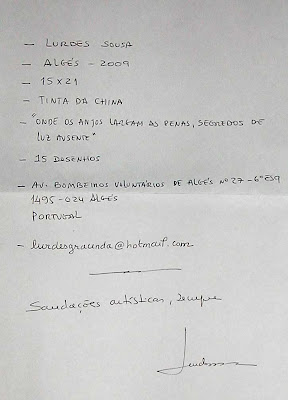 - LURDES SOUSA
- ALGÉS - 2009
- 15 X 21
- TINTA DA CHINA
- "ONDE OS ANJOS LARGAM AS PENAS, SEGREDOS DE
LUZ AUSENTE"
- 15 DESENHOS
- AV. BOMBEIROS VOLUNTÁRIOS DE ALGÉS Nº 27 - 6º
1495-024 ALGÉS
PORTUGAL
- lurdesgraunda@hotmail.com
Saudações artísticas, sempre